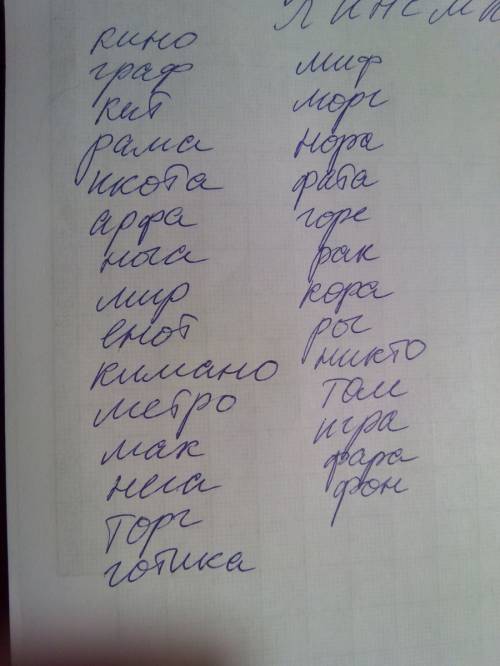 кино
граф
кит
рама
икота
арфа
нога
мир
енот
кимано
метро
мак
нега
торг
готика
миф
морг
нора
фата
горе
рак
кора
рог
никто
том
игра
фара
фон